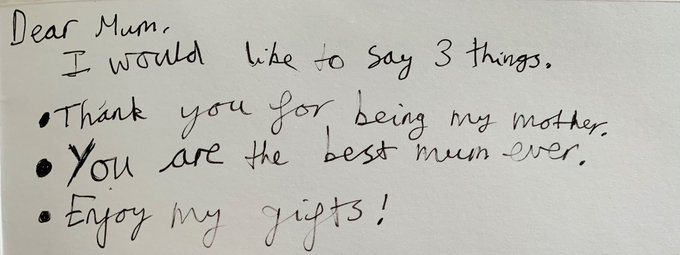 Dear Mum,
I would like to say 3 things.
• Thank you for being my mother.
• You are the best mum ever.
• Enjoy my gifts!